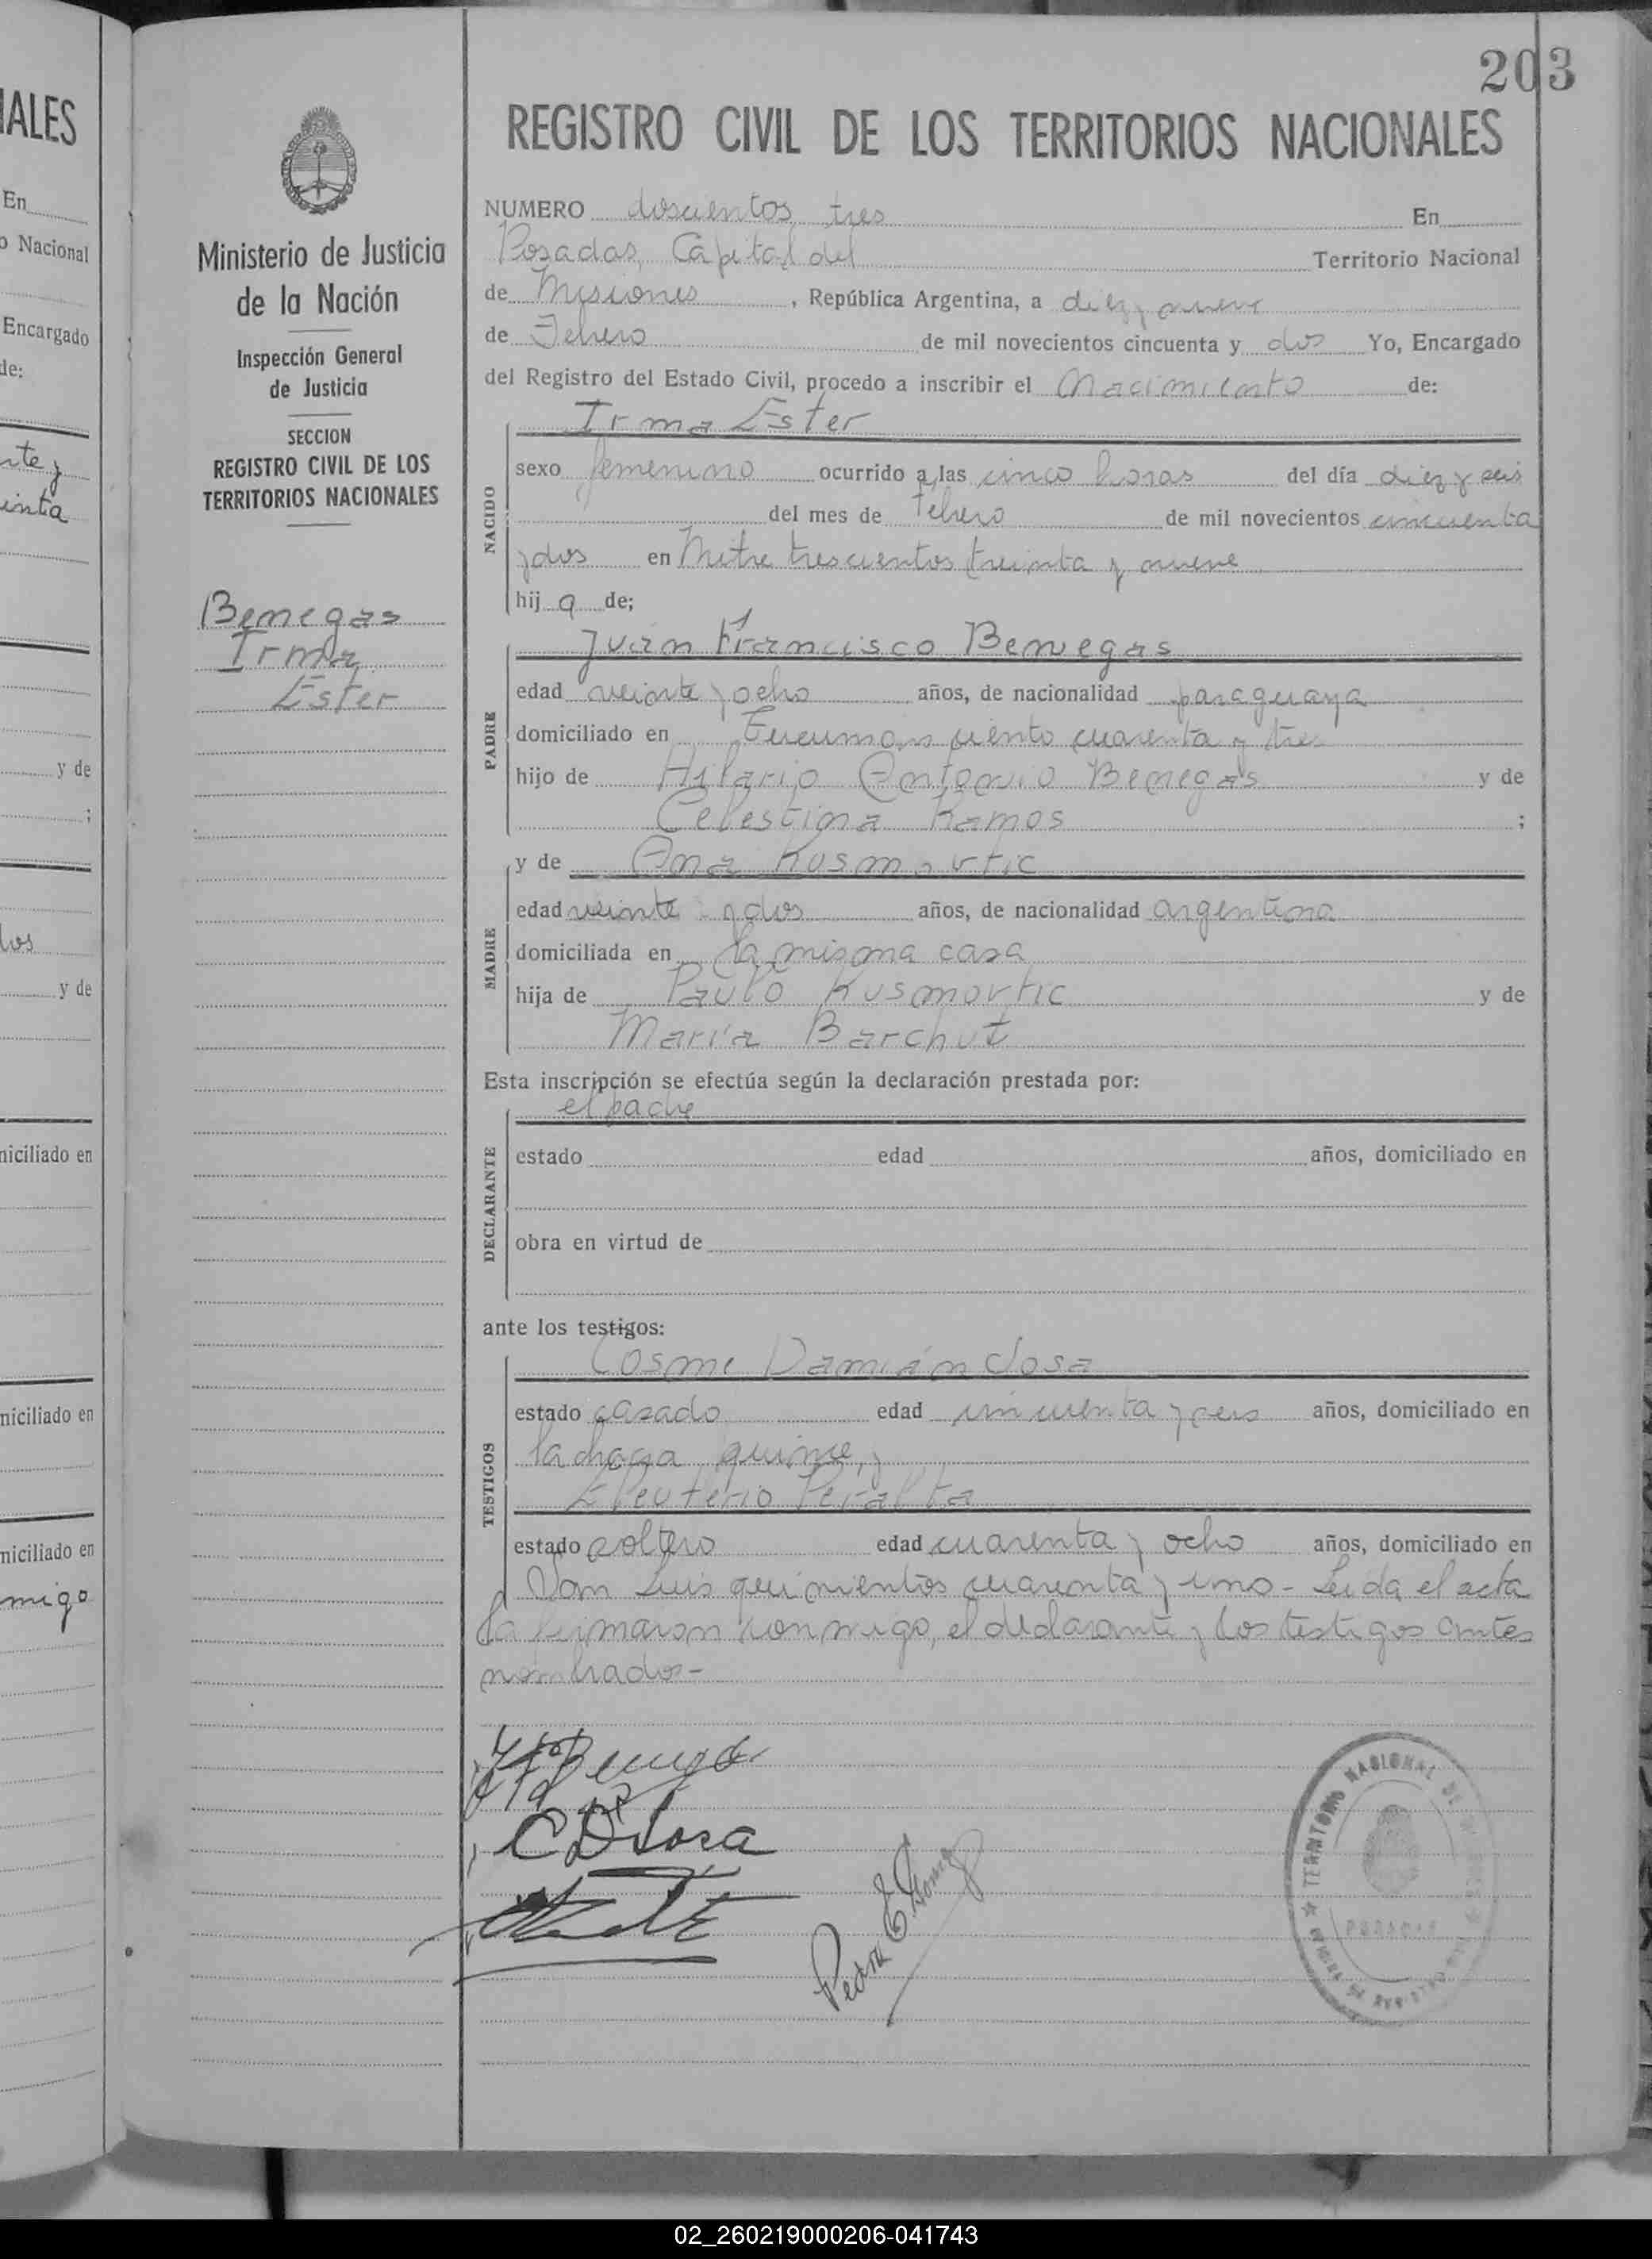 203
REGISTRO CIVIL DE LOS TERRITORIOS NACIONALES
Ministerio de Justicia
de la Nación
Inspección General
de Justicia
SECCION
REGISTRO CIVIL DE LOS
TERRITORIOS NACIONALES
Benegas
Irma
Ester
NUMERO doscientos tres En
Posadas, Capital del Territorio Nacional
de Misiones, República Argentina, a diez y nueve
de Febrero de mil novecientos cincuenta y dos Yo, Encargado
del Registro del Estado Civil, procedo a inscribir el Nacimiento de:
NACIDO
Irma Ester
sexo femenino ocurrido a las cinco horas del día diez y seis
del mes de Febrero de mil novecientos cincuenta
y dos en Mitre trescientos treinta y nueve
hij a de;
PADRE
Juan Francisco Benegas
edad veinte y ocho años, de nacionalidad paraguaya
domiciliado en Tucuman ciento cuarenta y tres
hijo de Hilario Antonio Benegas y de
Celestina Ramos ;
MADRE
y de Ana Kusmovtic
edad veinte y dos años, de nacionalidad argentina
domiciliada en la misma casa
hija de Paulo Kusmovtic y de
María Barchut
Esta inscripción se efectúa según la declaración prestada por:
DECLARANTE
el padre
estado edad años, domiciliado en
obra en virtud de
ante los testigos:
TESTIGOS
Cosme Damián Sosa
estado casado edad cincuenta y años, domiciliado en
la chacra quince, y
Eleuterio Peralta
estado soltero edad cuarenta y ocho años, domiciliado en
San Luis quinientos cuarenta y uno - Leida el acta
la firmaron conmigo, el declarante y los testigos antes
nombrados -
C D Sosa
Pedro E.
TERRITORIO NACIONAL DE MISIONES
POSADAS
ALES
En
o Nacional
Encargado
de:
nte y
inta
y de
;
los
y de
niciliado en
niciliado en
niciliado en
migo
02_260219000206-041743